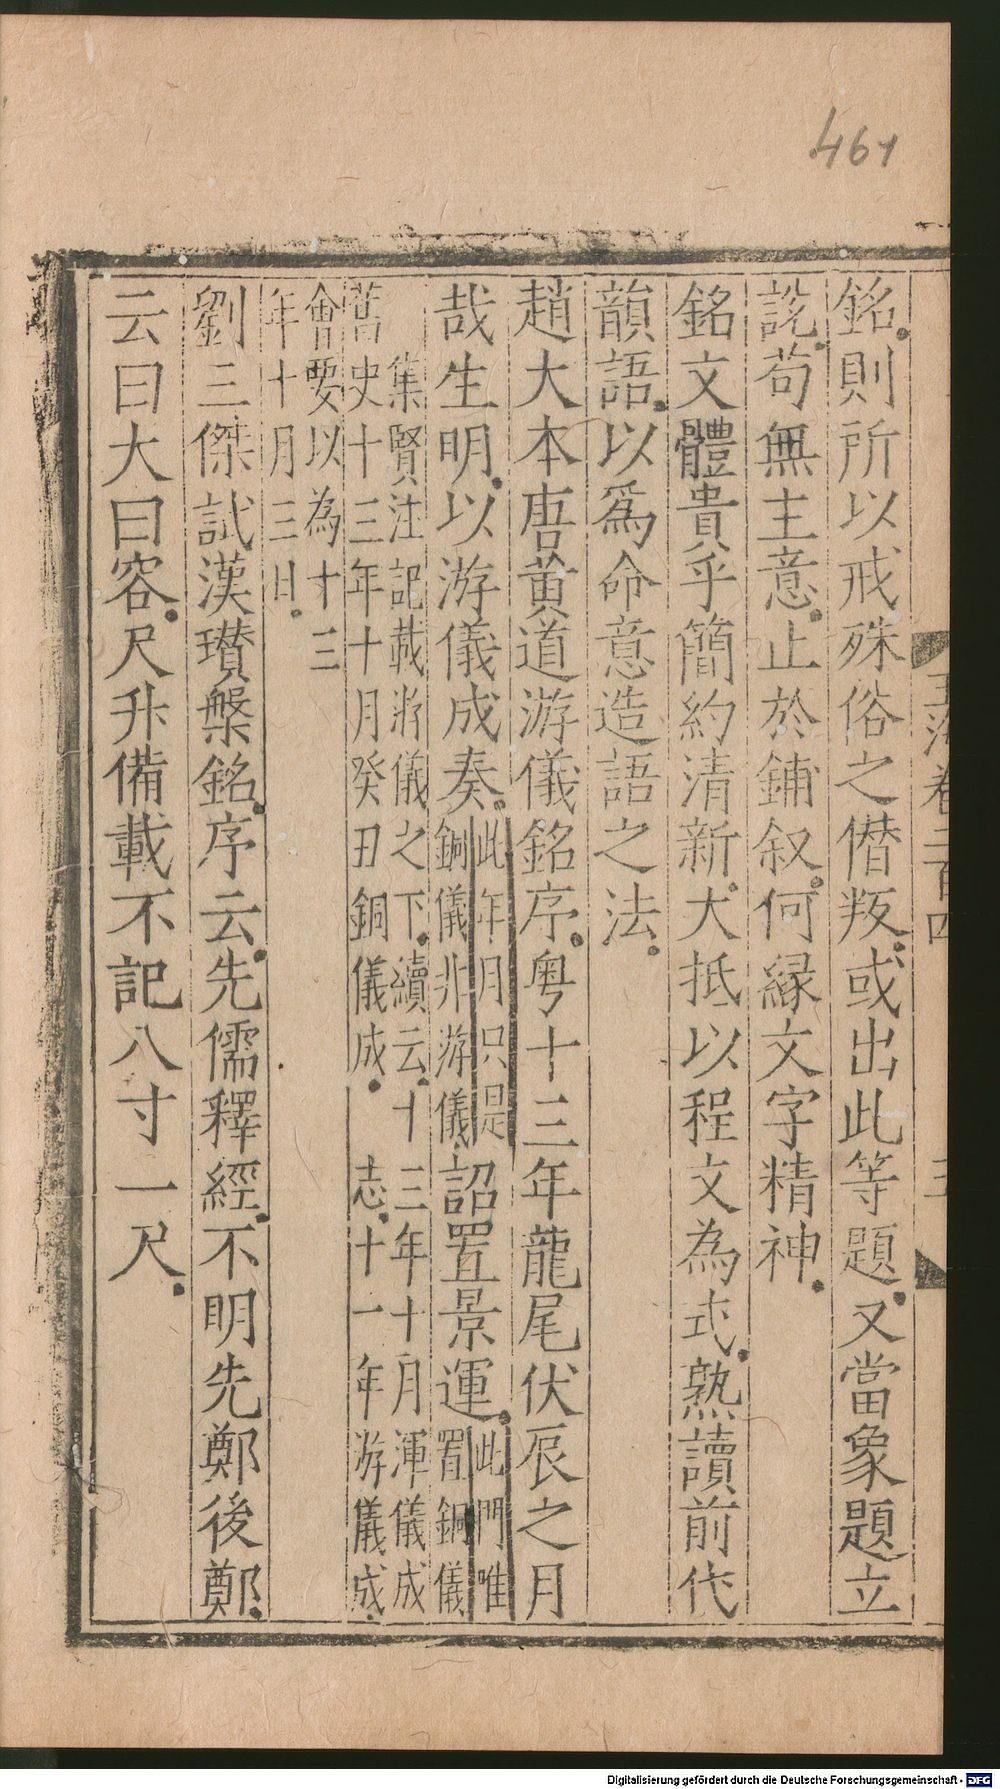 461
玉海卷二百四
三
銘則所以戒殊俗之僭叛或出此等題又當象題立
說苟無主意止於鋪叙何縁文字精神
銘文體貴乎簡約清新大抵以程文為式熟讀前代
韻語以爲命意造語之法
趙大本唐黄道游儀銘序粤十三年龍尾伏辰之月
哉生明以游儀成奏此年年月只是銅儀非游儀詔置景運此門唯置銅儀
集賢注記載游儀之下續云十三年十月渾儀成
舊史十三年十月癸丑銅儀成志十一年游儀成
會要以為十三
年十月三日
劉三傑試漢瓚槃銘序云先儒釋經不明先鄭後鄭
云曰大曰容尺升備載不記八寸一尺
Digitalisierung gefördert durch die Deutsche Forschungsgemeinschaft - DFG